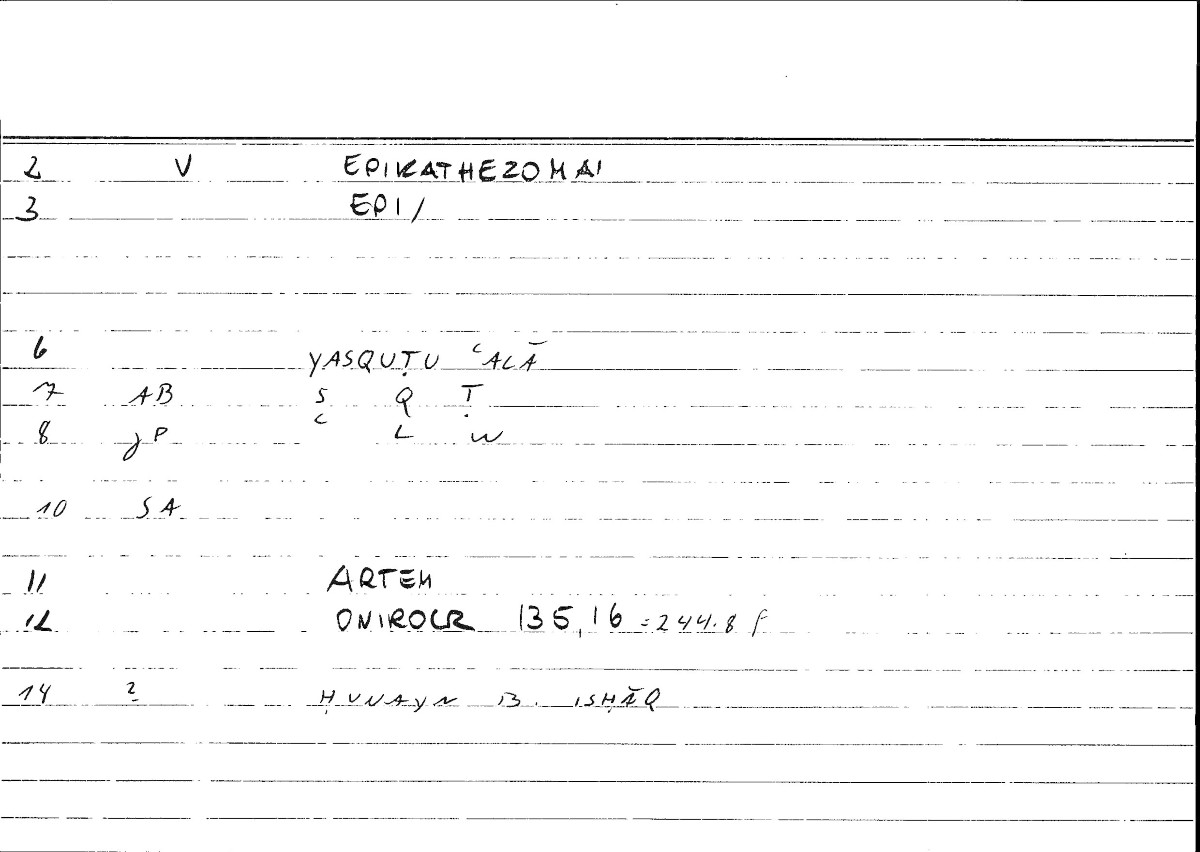 2 V EPIKATHEZOMAI
3 EPI/
6 YASQUṬU ʿALĀ
7 AB S Q Ṭ
8 JP ʿ L W
10 SA
11 ARTEM
12 ONIROCR 135,16 = 244.8 f
14 ? ḤUNAYN B. ISḤĀQ